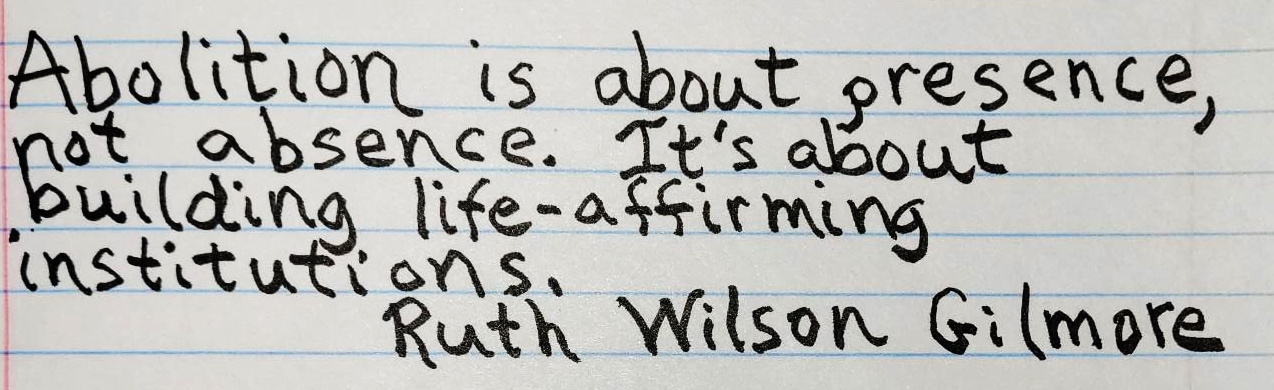 Abolition is about presence,
not absence. It's about
building life-affirming
institutions.
Ruth Wilson Gilmore